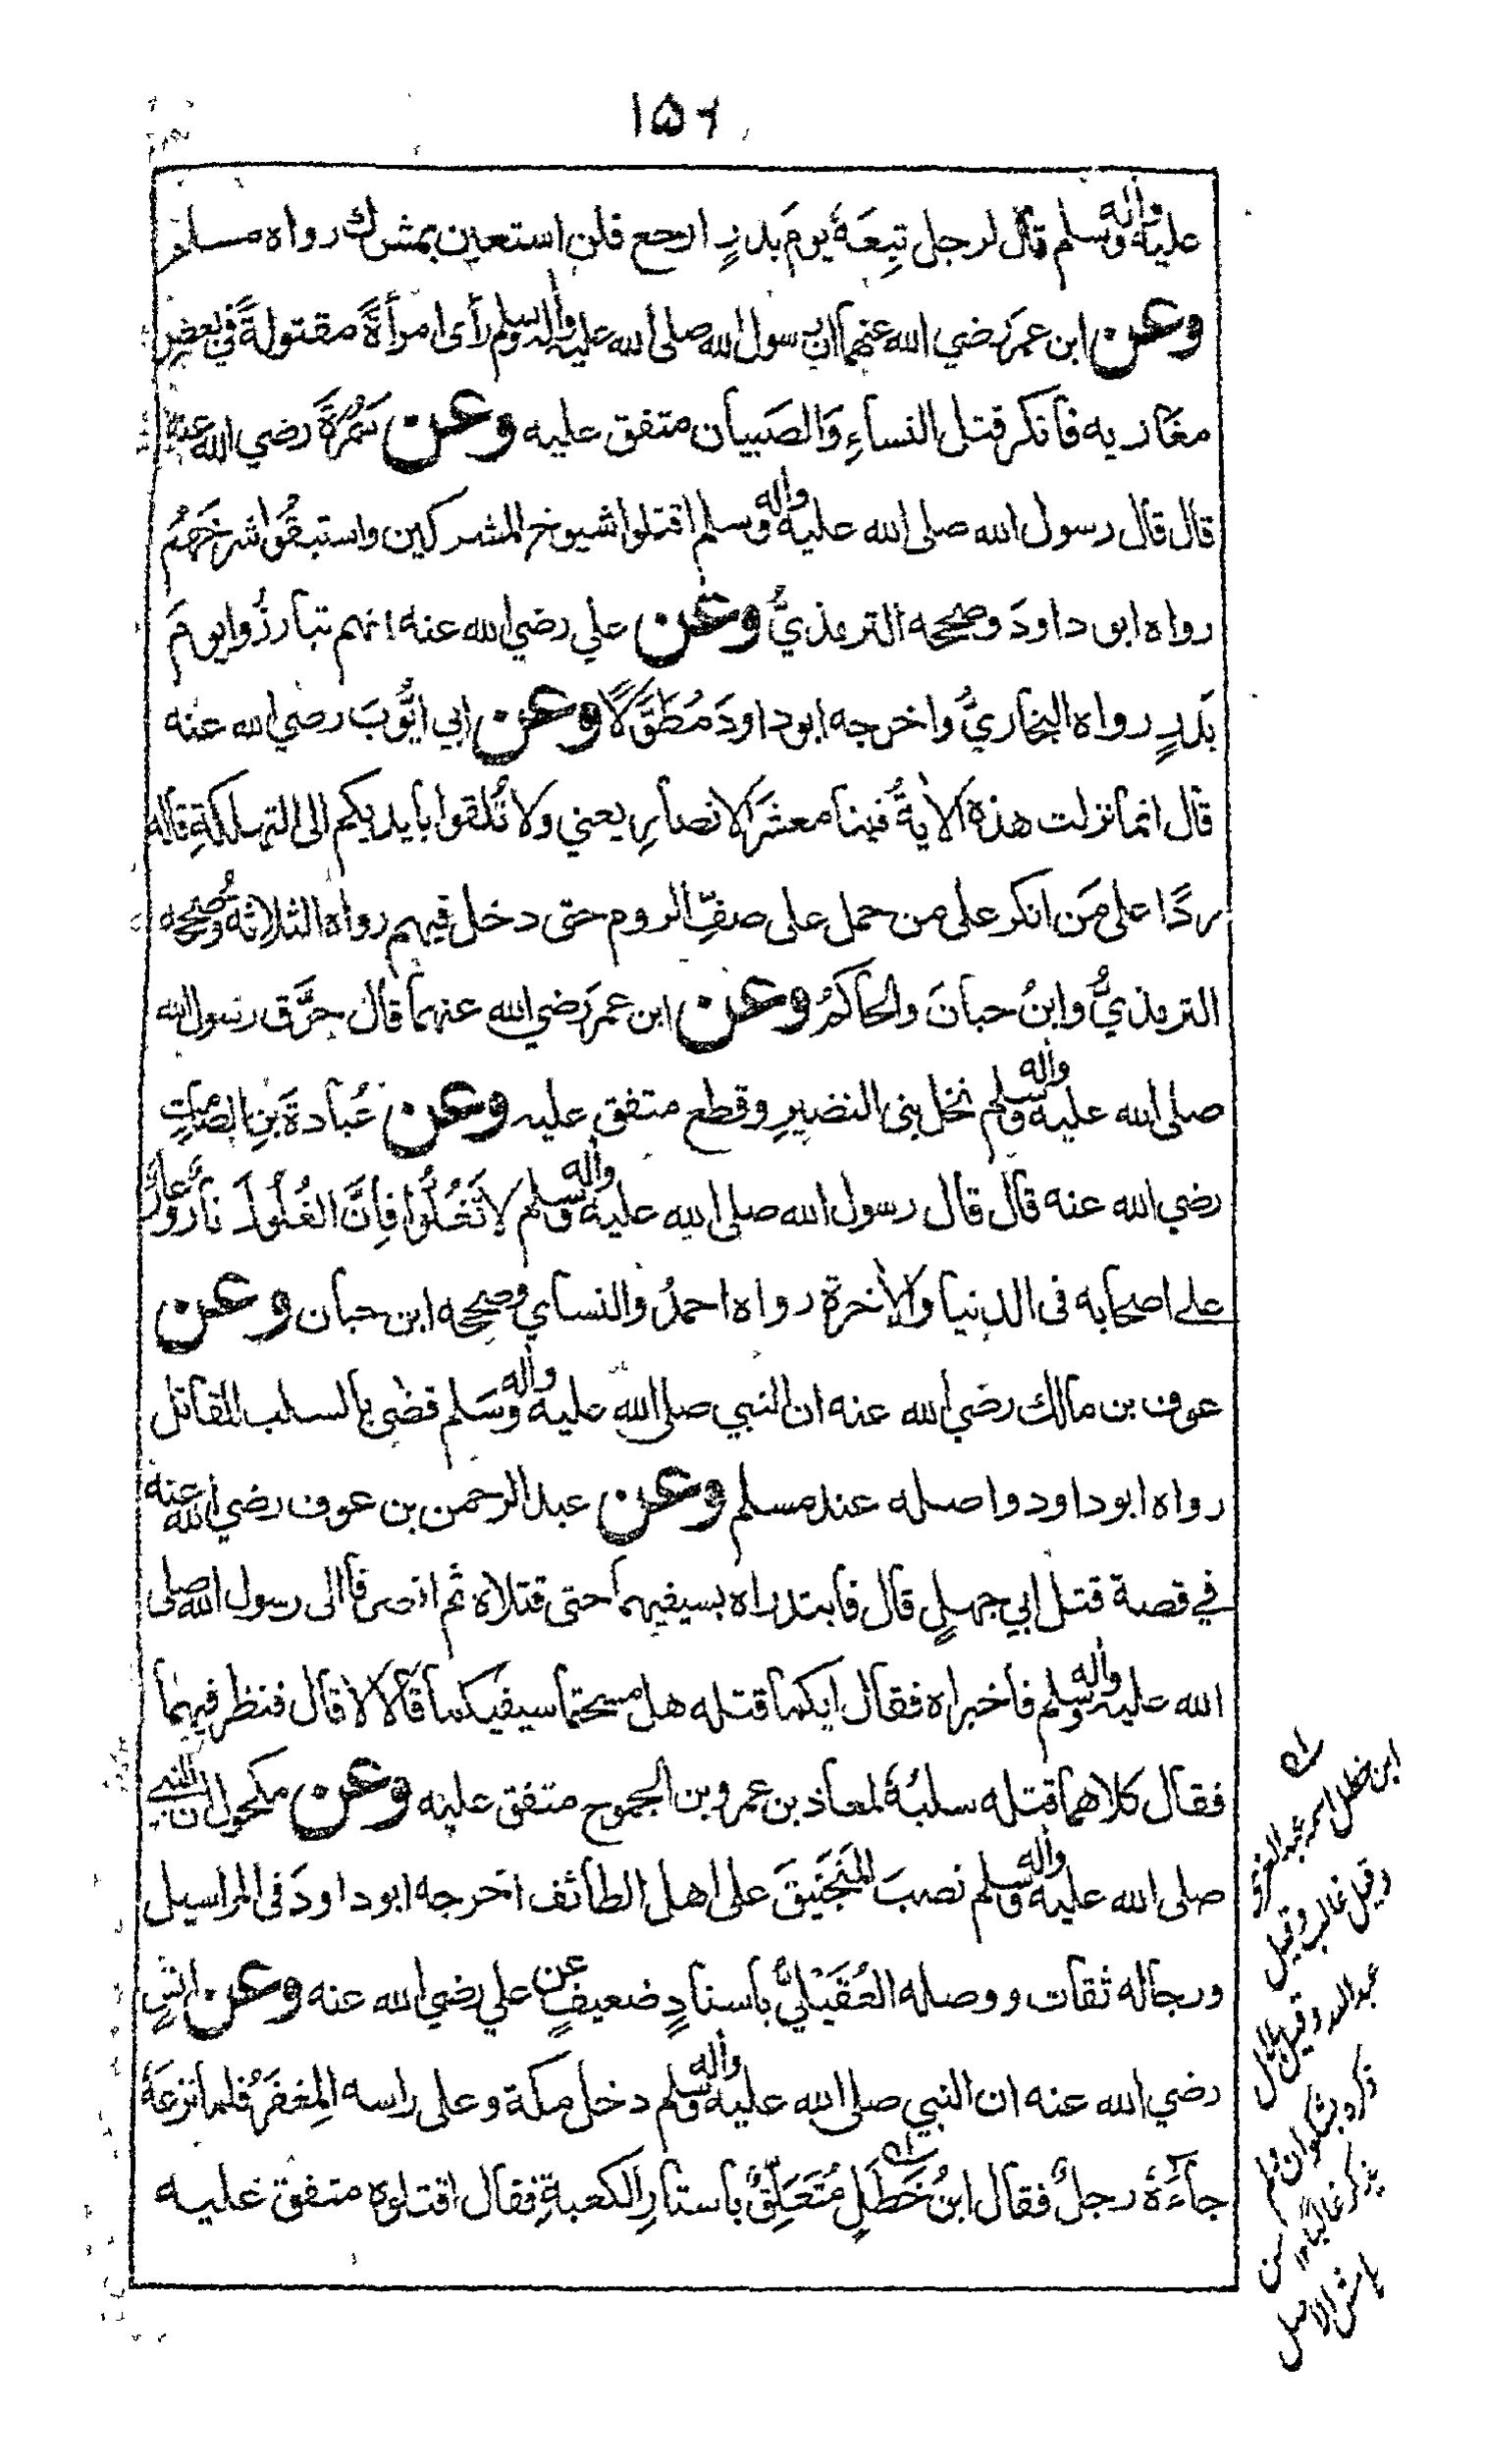 ١٥٦
عليه واٰله وسلم قال لرجل تبِعَهٗ يومَ بدرٍ ارجع فلن استعين بمشرك رواه مسلم
وعن ابن عمرَ رضي الله عنهما ان رسول الله صلى الله عليه واٰله وسلم رأى امرأةً مقتولةً في بعضِ
مغازيه فأنكر قتل النساءِ وَالصَبيان متفق عليه وعن سَمُرَةَ رضي الله عنه
قال قال رسول الله صلى الله عليه واٰله وسلم اقتلوا شيوخ المشركين واستبقُوا شرخَهُم
رواه ابو داودَ وصححه الترمذيُّ وعن علي رضي الله عنه انهم تبارزُوا يومَ
بَدرٍ رواه البخاريُّ واخرجه ابو داودَ مُطَوَّلًا وعن ابي ايُّوبَ رضي الله عنه
قال انما نزلت هذه الاٰيةُ فينا معشرَ الانصارِ يعني ولا تُلقوا بأيديكم الى التهلكةِ قاله
ردًا على مَن انكر على من حمل على صفِّ الروم حتى دخل فيهم رواه الثلاثةُ وصححه
الترمذيُّ وابنُ حبانَ والحاكمُ وعن ابن عمرَ رضي الله عنهما قال حرَّق رسول الله
صلى الله عليه واٰله وسلم نخل بنى النضيرِ وقطع متفق عليه وعن عُبادةَ بنِ الصامتِ
رضي الله عنه قال قال رسول الله صلى الله عليه واٰله وسلم لا تَغُلُّوا فإنَّ الغُلُولَ نارٌ وعارٌ
على اصحابه فى الدنيا والاٰخرة رواه احمدُ والنساي وصححه ابن حبان وعن
عوف بن مالك رضي الله عنه ان النبي صلى الله عليه واٰله وسَلم قضٰى بالسلب للقاتل
رواه ابو داود واصله عند مسلم وعن عبد الرحمن بن عوف رضي الله عنه
في قصة قتل ابي جهلٍ قال فابتدراه بسيفيهما حتى قتلاه ثم انصرفا الى رسول الله صلى
الله عليه واٰله وسلم فأخبراه فقال ايكما قتله هل مسحتما سيفيكما قالا لا قال فنظر فيهما
فقال كلاهما قتله سلبُهٗ لمعاذ بن عمرو بن الجموح متفق عليه وعن مكحول ان النبي
صلى الله عليه واٰله وسلم نصبَ المَنجَنِيقَ على اهل الطائف اخرجه ابو داودَ فى المراسيل
ورجاله ثقات ووصله العُقَيْليُّ بأسنادٍ ضعيفٍ عن علي رضي الله عنه وعن انسٍ
رضي الله عنه ان النبي صلى الله عليه واٰله وسلم دخل مكة وعلى راسه المِغفَرُ فلما نزعَهٗ
جآءَهٗ رجلٌ فقال ابنُ خَطَلٍ مُتَعَلِّقٌ بأستارِ الكعبةِ فقال اقتلوه متفق عليه
ابن خطل اسمه عبد العزى
وقيل غالب وقيل
عبد الله وقيل